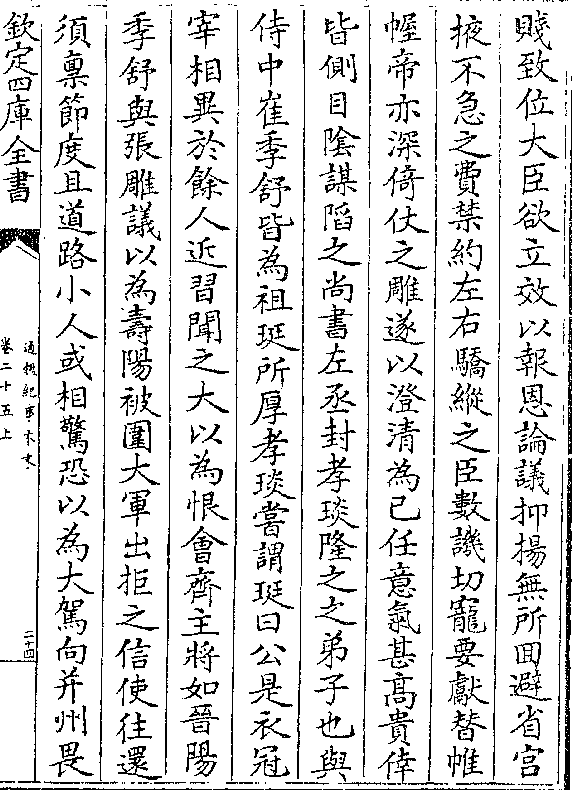 賤致位大臣欲立效以報恩論議抑揚無所回避省宫
掖不急之費禁約左右驕縱之臣數譏切寵要獻替帷
幄帝亦深倚仗之雕遂以澄清為已任意氣甚髙貴倖
皆側目隂謀陷之尚書左丞封孝琰隆之之弟子也與
侍中崔季舒皆為祖珽所厚孝琰嘗謂珽曰公是衣冠
宰相異於餘人近習聞之大以為恨㑹齊主將如晉陽
季舒與張雕議以為壽陽被圍大軍出拒之信使往還
須禀節度且道路小人或相驚恐以為大駕向并州畏
欽定四庫全書
通鑑紀事本末
卷二十五上
二十四